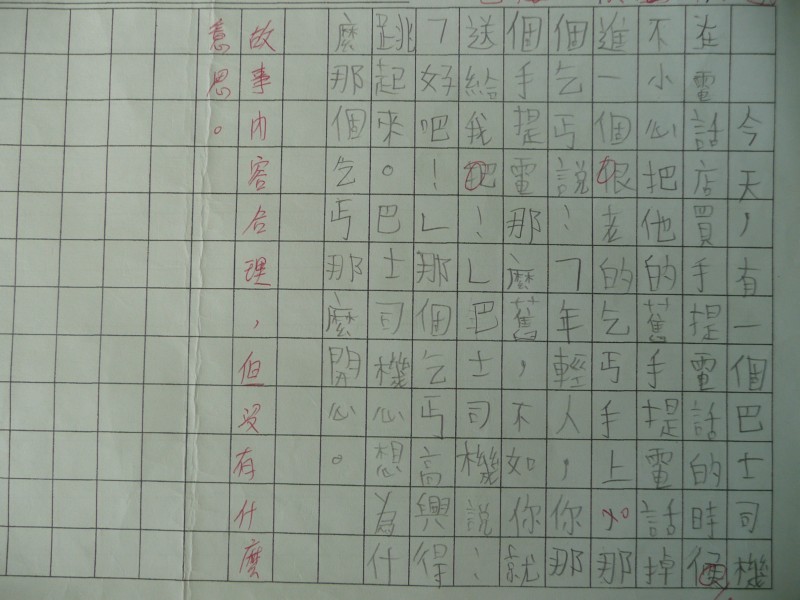 今天，有一個巴士司機
在電話店買手提電話的時便
不小心把他的舊手提電話掉
進一個很老的乞丐手上。那
個乞丐說：「年輕人，你那
個手提電那麼舊，不如你就
送給我吧！」巴士司機說：
「好吧！」那個乞丐高興得
跳起來。巴士司機心想為什
麼那個乞丐那麼開心。
故事內容合理，但沒有什麼
意思。